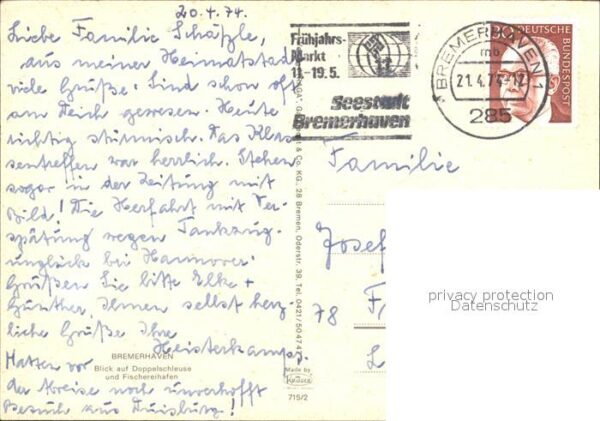 20.4.74.
Liebe Familie Schäfle,
aus meiner Heimatstadt
viele Grüße. Sind schon oft
am Deich gewesen. Heute
richtig stürmisch. Das Klas-
sentreffen war herrlich. Stehen
sogar in der Zeitung mit
Bild! Die Herfahrt mit Ver-
spätung wegen Tankzug-
unglück bei Hannover.
Grüßen Sie bitte Elke +
Günther, Ihnen selbst herz-
liche Grüße Ihre
Heisterkamps.
Hatten vor
der Abreise noch unverhofft
Besuch aus Duisburg!
BREMERHAVEN
Blick auf Doppelschleuse
und Fischereihafen
28 Bremen, Oderstr. 39, Tel. 0421/50474
Made by
Krüger
715/2
Frühjahrs-
Markt
11.-19.5.
Seestadt
Bremerhaven
BREMERHAVEN 1
mb
21.4.74-12
285
DEUTSCHE
BUNDESPOST
Familie
Josef
78
privacy protection
Datenschutz